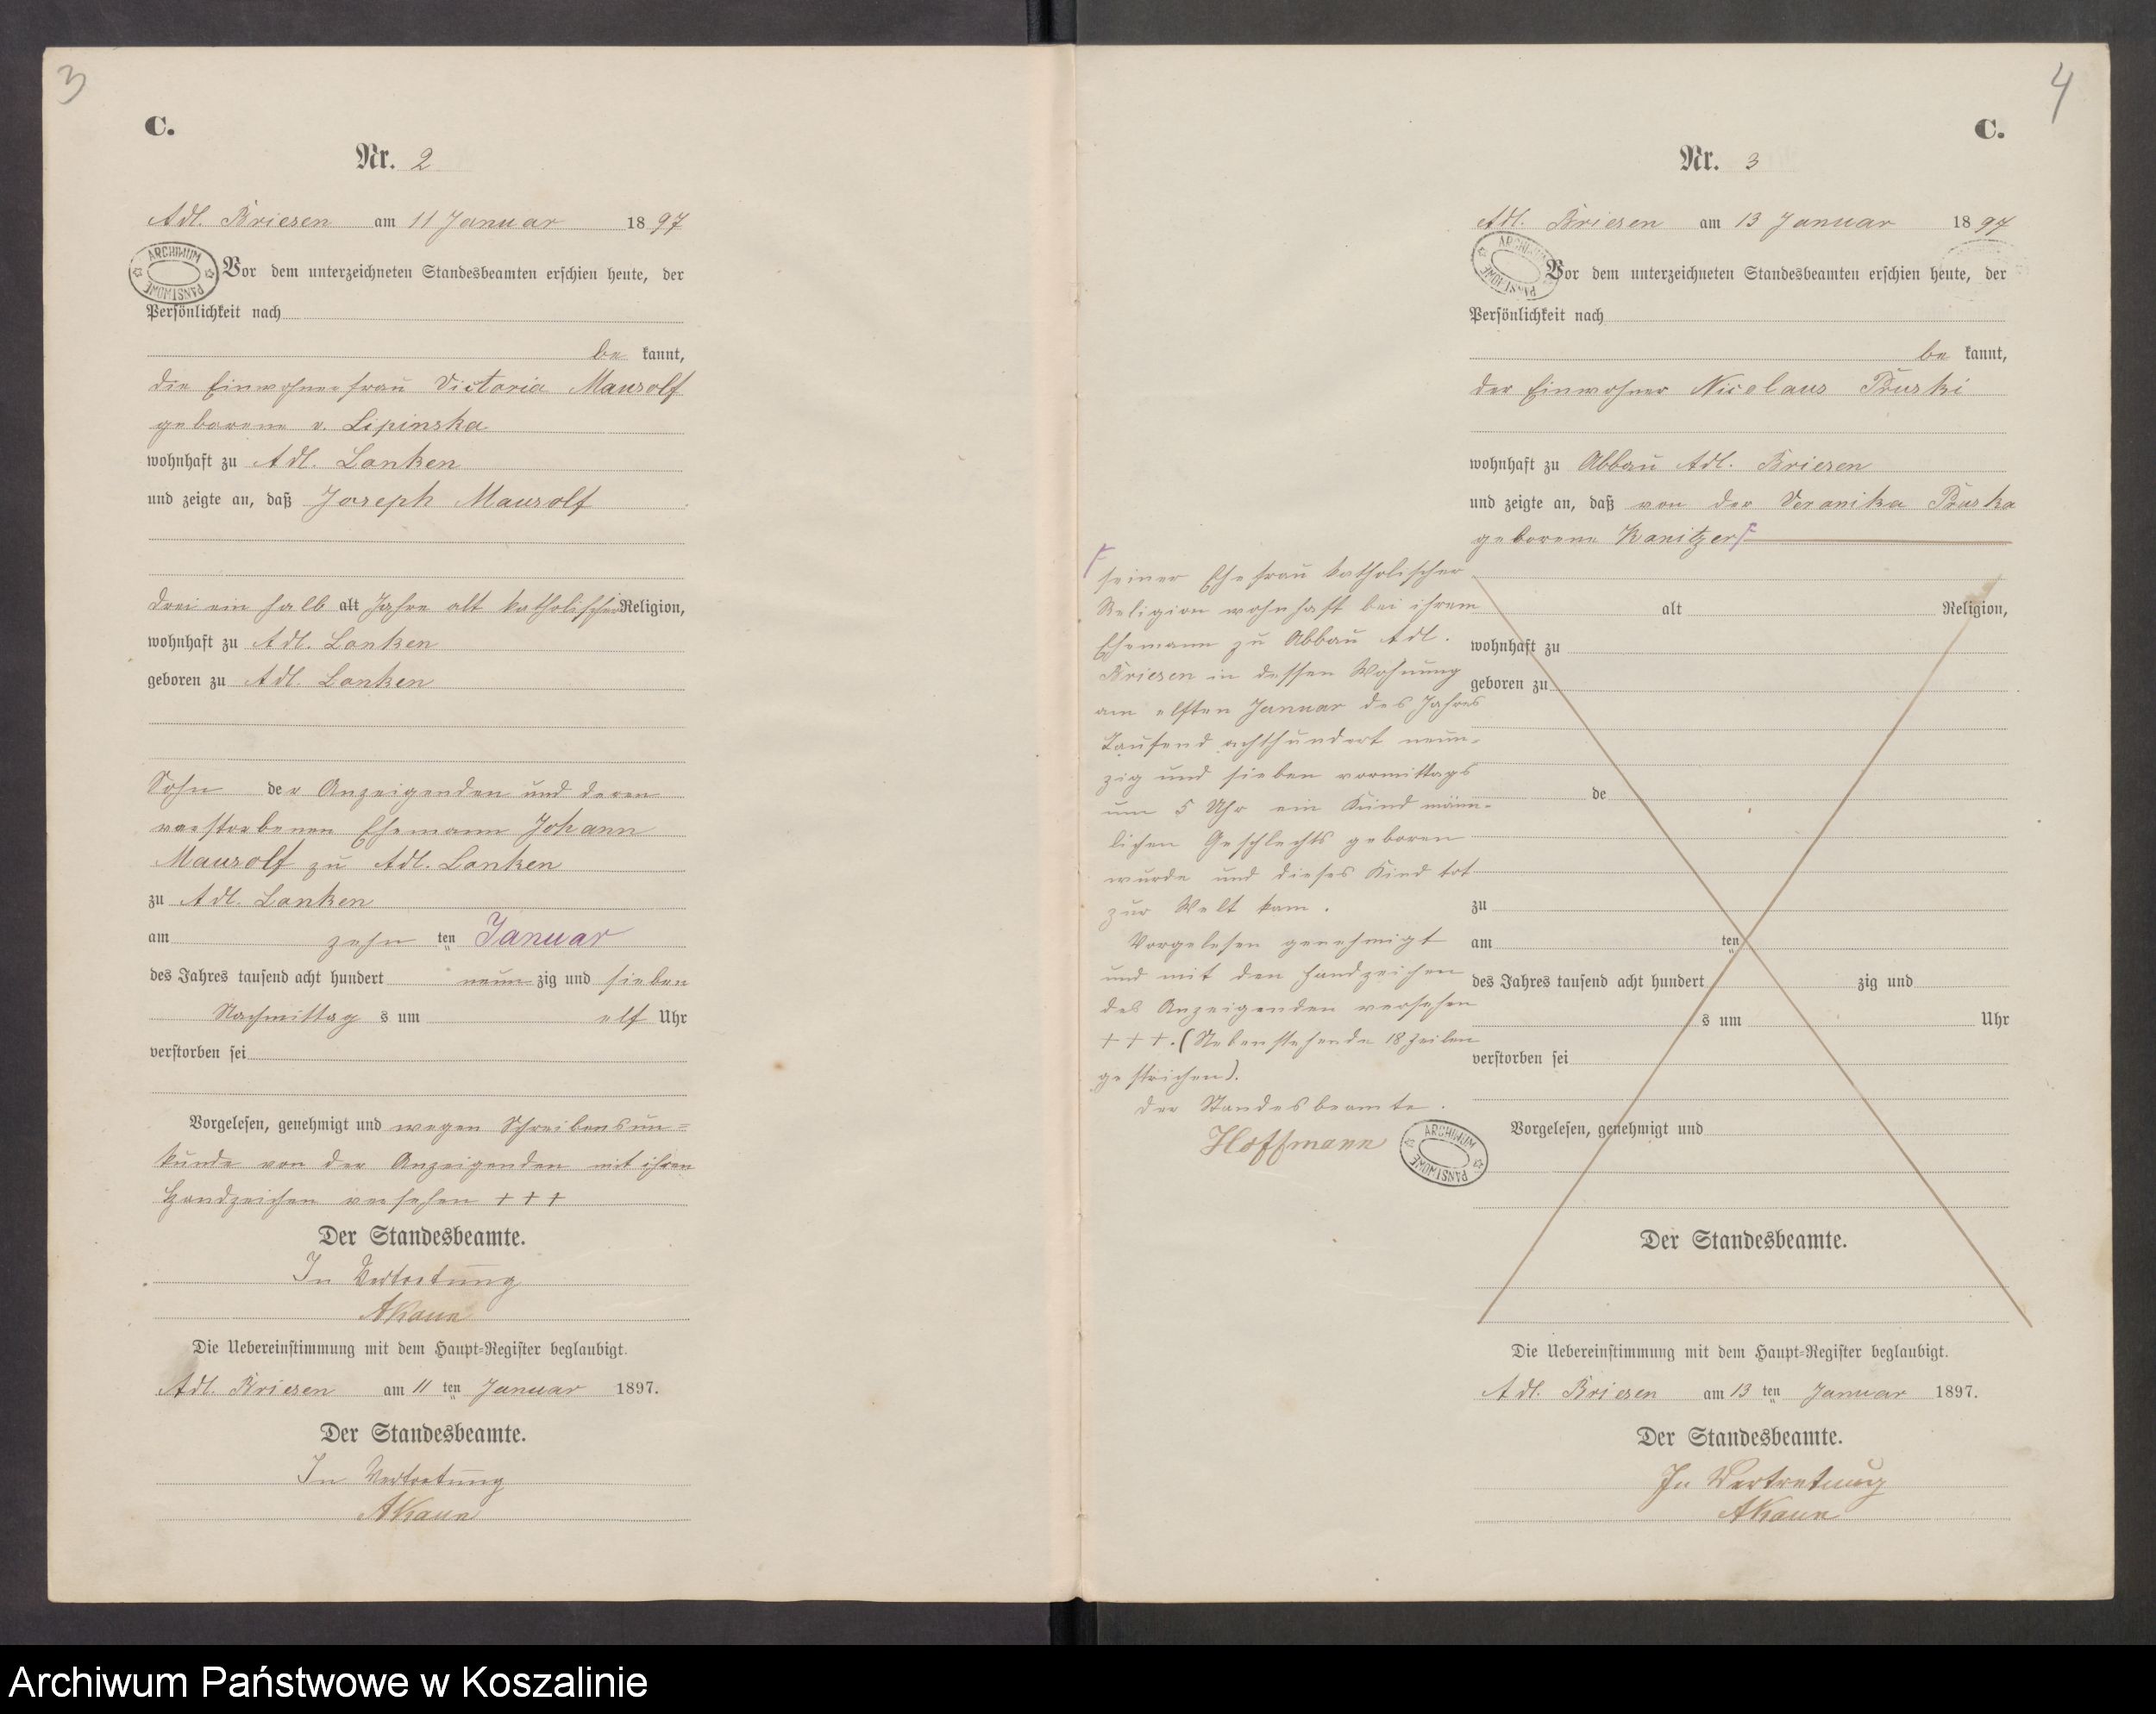 3
C.
Nr. 2
Adl. Briesen am 11 Januar 1897
ARCHIWUM PAŃSTWOWE
Vor dem unterzeichneten Standesbeamten erschien heute, der
Persönlichkeit nach
be kannt,
die Einwohnerfrau Victoria Mausolf
geborene v. Lipinska
wohnhaft zu Adl. Lanken
und zeigte an, daß Joseph Mausolf
drei ein halb alt Jahre alt katholischer Religion,
wohnhaft zu Adl. Lanken
geboren zu Adl. Lanken
Sohn der Anzeigenden und deren
verstorbenen Ehemann Johann
Mausolf zu Adl. Lanken
zu Adl. Lanken
am zehn ten Januar
des Jahres tausend acht hundert neun zig und sieben
Nachmittag s um elf Uhr
verstorben sei
Vorgelesen, genehmigt und wegen Schreibensun=
kunde von der Anzeigenden mit ihren
Handzeichen versehen + + +
Der Standesbeamte.
In Vertretung
AKaun
Die Uebereinstimmung mit dem Haupt-Register beglaubigt.
Adl. Briesen am 11 ten Januar 1897.
Der Standesbeamte.
In Vertretung
AKaun
4
C.
Nr. 3
Adl. Briesen am 13 Januar 1897
ARCHIWUM PAŃSTWOWE
Vor dem unterzeichneten Standesbeamten erschien heute, der
Persönlichkeit nach
be kannt,
der Einwohner Nicolaus Pruski
wohnhaft zu Abbau Adl. Briesen
und zeigte an, daß von der Veronika Pruska
geborene Kanitzer F
F
seiner Ehefrau katholischer
Religion wohnhaft bei ihrem
Ehemann zu Abbau Adl.
Briesen in dessen Wohnung
am elften Januar des Jahres
Tausend achthundert neun-
zig und sieben vormittags
um 5 Uhr ein Kind männ-
lichen Geschlechts geboren
wurde und dieses Kind tot
zur Welt kam.
Vorgelesen genehmigt
und mit den Handzeichen
des Anzeigenden versehen
+ + +. (Nebenstehende 18 Zeilen
gestrichen).
Der Standesbeamte.
Hoffmann
ARCHIWUM PAŃSTWOWE
alt Religion,
wohnhaft zu
geboren zu
de
zu
am ten
des Jahres tausend acht hundert zig und
s um Uhr
verstorben sei
Vorgelesen, genehmigt und
Der Standesbeamte.
Die Uebereinstimmung mit dem Haupt-Register beglaubigt.
Adl. Briesen am 13 ten Januar 1897.
Der Standesbeamte.
In Vertretung
AKaun
Archiwum Państwowe w Koszalinie